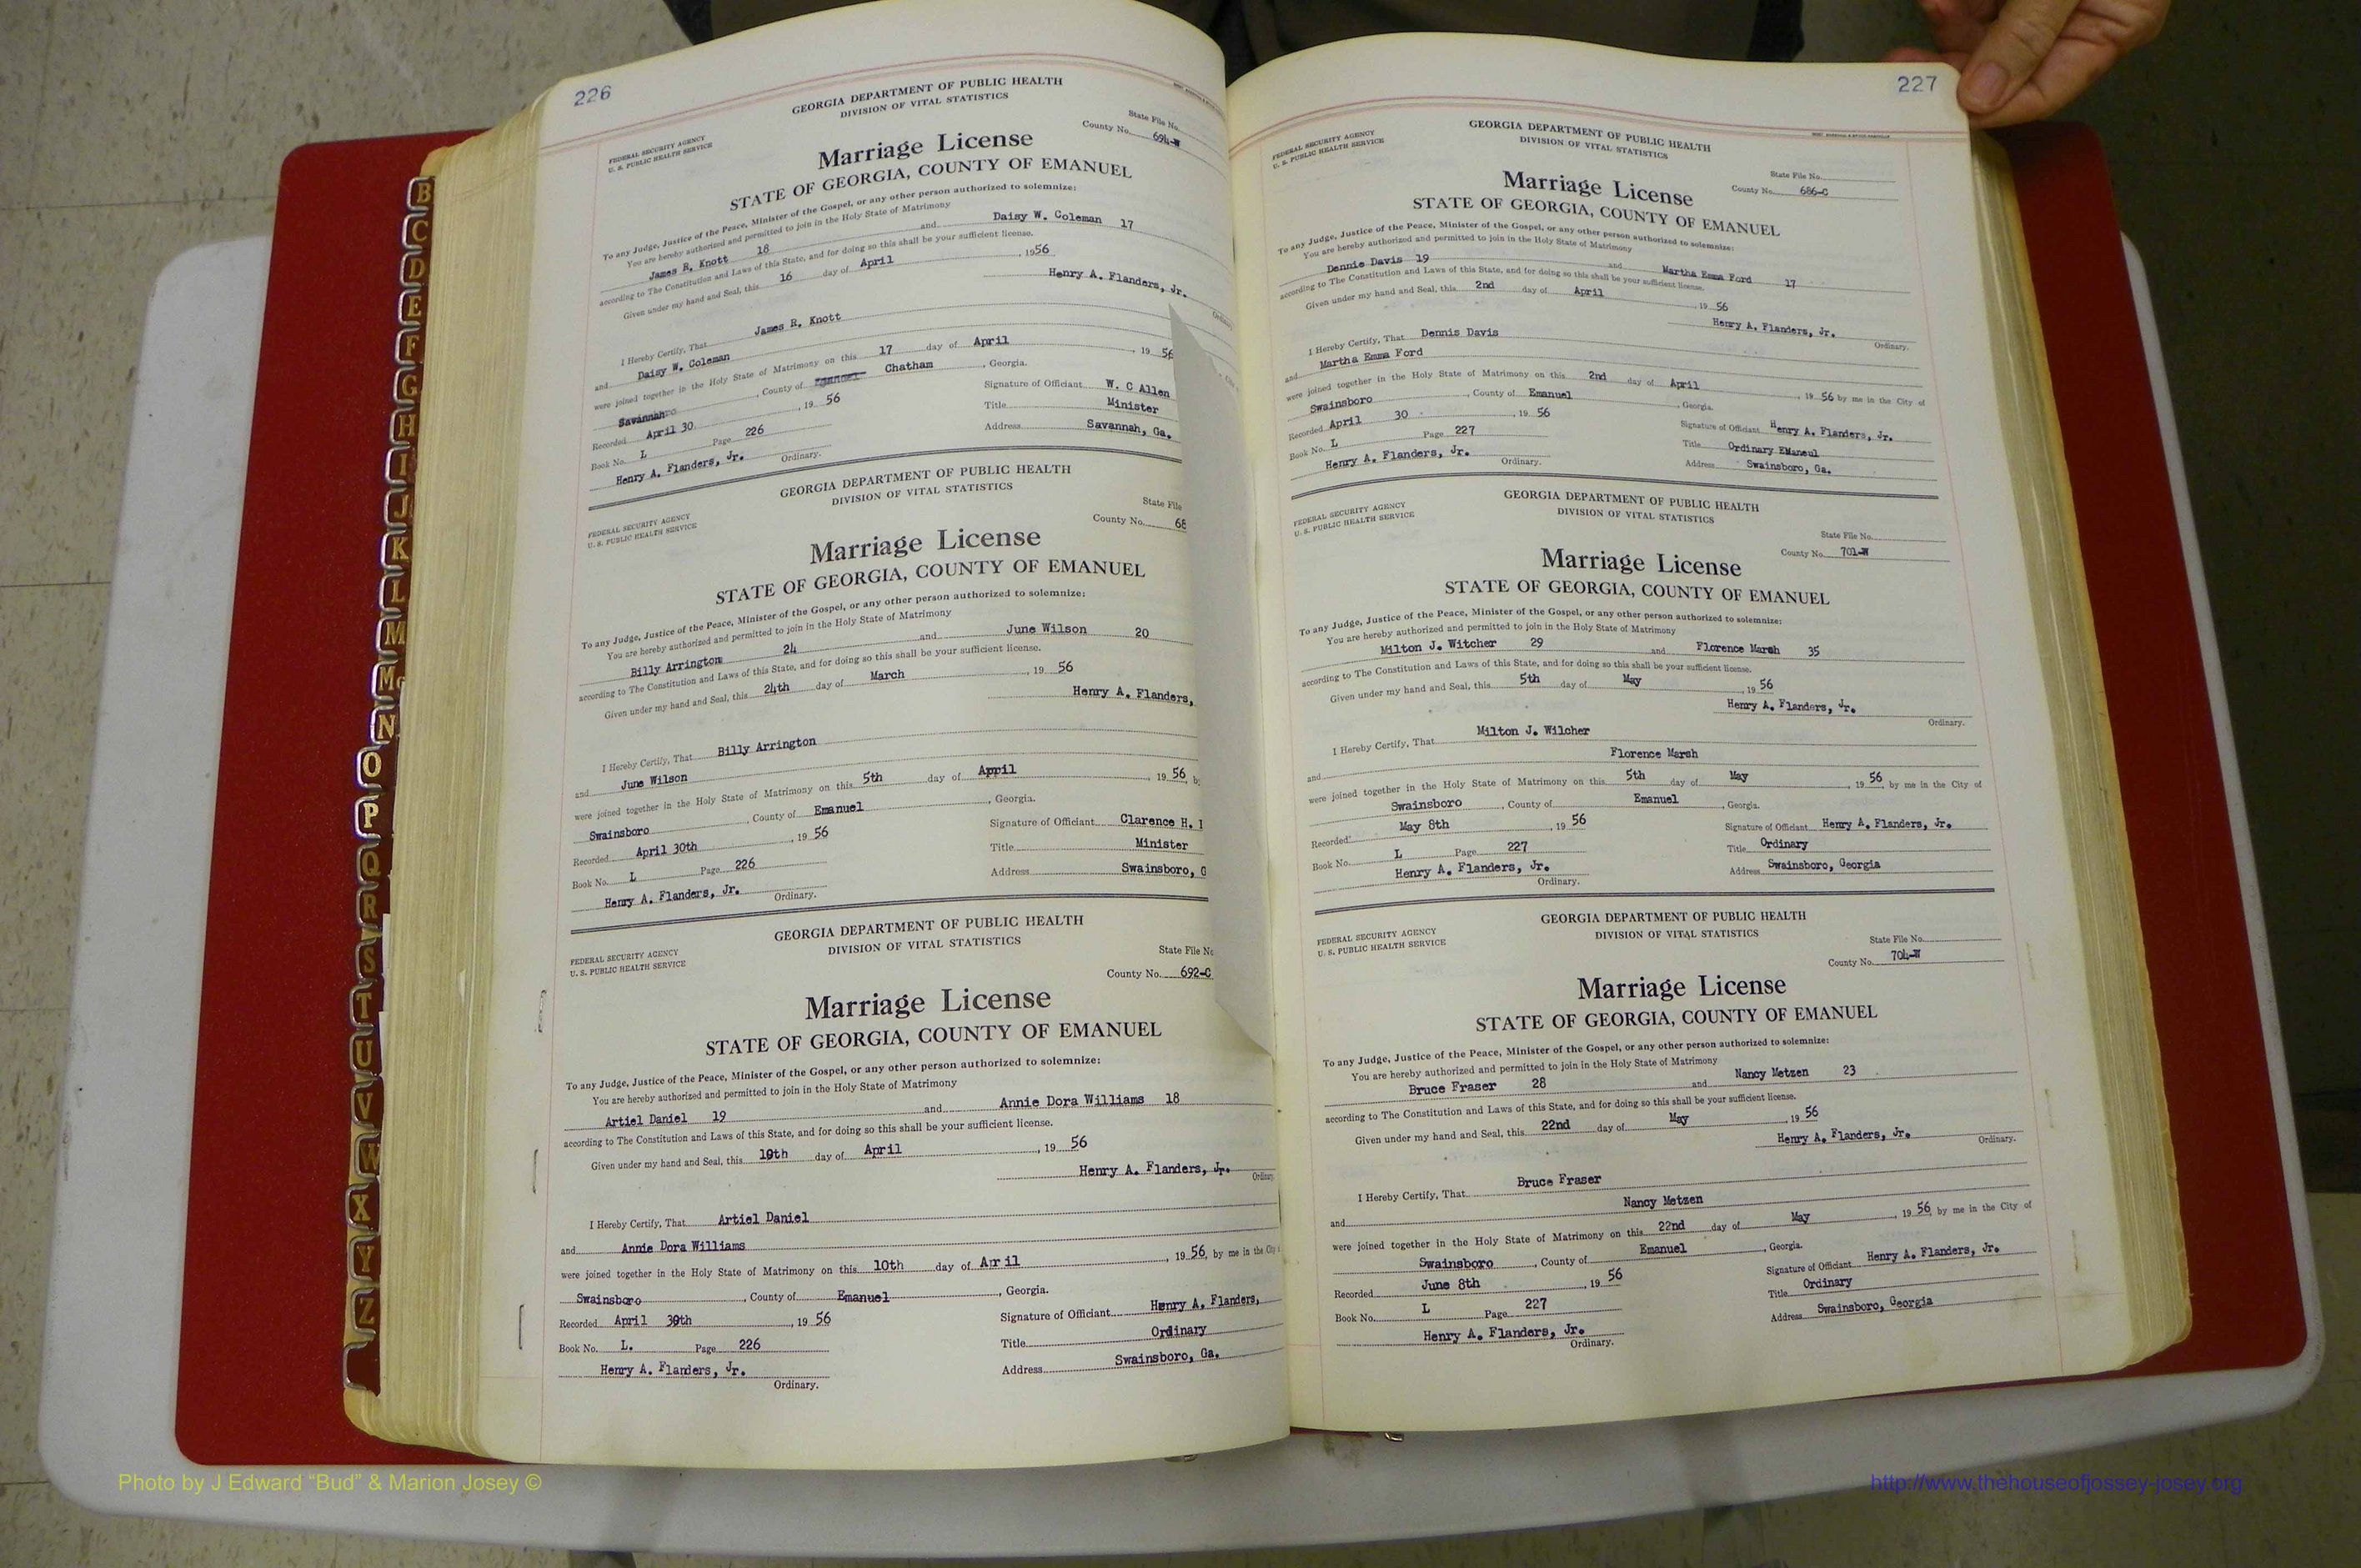 226
GEORGIA DEPARTMENT OF PUBLIC HEALTH
DIVISION OF VITAL STATISTICS
FEDERAL SECURITY AGENCY
U. S. PUBLIC HEALTH SERVICE
State File No.
County No. 694-W
Marriage License
STATE OF GEORGIA, COUNTY OF EMANUEL
To any Judge, Justice of the Peace, Minister of the Gospel, or any other person authorized to solemnize:
You are hereby authorized and permitted to join in the Holy State of Matrimony
James R. Knott 18 and Daisy W. Coleman 17
according to The Constitution and Laws of this State, and for doing so this shall be your sufficient license.
Given under my hand and Seal, this 16 day of April, 1956
Henry A. Flanders, Jr.
Ordinary
I Hereby Certify, That James R. Knott
and Daisy W. Coleman
were joined together in the Holy State of Matrimony on this 17 day of April, 19 56
Savannah, County of Chatham, Georgia.
Recorded April 30, 19 56
Signature of Officiant W. C Allen
Book No. L Page 226
Title Minister
Henry A. Flanders, Jr. Ordinary.
Address Savannah, Ga.
GEORGIA DEPARTMENT OF PUBLIC HEALTH
DIVISION OF VITAL STATISTICS
FEDERAL SECURITY AGENCY
U. S. PUBLIC HEALTH SERVICE
State File
County No. 68
Marriage License
STATE OF GEORGIA, COUNTY OF EMANUEL
To any Judge, Justice of the Peace, Minister of the Gospel, or any other person authorized to solemnize:
You are hereby authorized and permitted to join in the Holy State of Matrimony
Billy Arrington 24 and June Wilson 20
according to The Constitution and Laws of this State, and for doing so this shall be your sufficient license.
Given under my hand and Seal, this 24th day of March, 19 56
Henry A. Flanders,
I Hereby Certify, That Billy Arrington
and June Wilson
were joined together in the Holy State of Matrimony on this 5th day of April, 19 56, b
Swainsboro, County of Emanuel, Georgia.
Recorded April 30th, 19 56
Signature of Officiant Clarence H.
Book No. L Page 226
Title Minister
Henry A. Flanders, Jr. Ordinary.
Address Swainsboro, G
GEORGIA DEPARTMENT OF PUBLIC HEALTH
DIVISION OF VITAL STATISTICS
FEDERAL SECURITY AGENCY
U. S. PUBLIC HEALTH SERVICE
State File No
County No. 692-C
Marriage License
STATE OF GEORGIA, COUNTY OF EMANUEL
To any Judge, Justice of the Peace, Minister of the Gospel, or any other person authorized to solemnize:
You are hereby authorized and permitted to join in the Holy State of Matrimony
Artiel Daniel 19 and Annie Dora Williams 18
according to The Constitution and Laws of this State, and for doing so this shall be your sufficient license.
Given under my hand and Seal, this 10th day of April, 19 56
Henry A. Flanders, Jr.
Ordinary
I Hereby Certify, That Artiel Daniel
and Annie Dora Williams
were joined together in the Holy State of Matrimony on this 10th day of April, 19 56, by me in the City
Swainsboro, County of Emanuel, Georgia.
Recorded April 30th, 19 56
Signature of Officiant Henry A. Flanders,
Book No. L. Page 226
Title Ordinary
Henry A. Flanders, Jr.
Ordinary.
Address Swainsboro, Ga.
227
GEORGIA DEPARTMENT OF PUBLIC HEALTH
DIVISION OF VITAL STATISTICS
FEDERAL SECURITY AGENCY
U. S. PUBLIC HEALTH SERVICE
State File No.
County No. 686-C
Marriage License
STATE OF GEORGIA, COUNTY OF EMANUEL
To any Judge, Justice of the Peace, Minister of the Gospel, or any other person authorized to solemnize:
You are hereby authorized and permitted to join in the Holy State of Matrimony
Dennie Davis 19 and Martha Emma Ford 17
according to The Constitution and Laws of this State, and for doing so this shall be your sufficient license.
Given under my hand and Seal, this 2nd day of April, 19 56
Henry A. Flanders, Jr.
Ordinary.
I Hereby Certify, That Dennis Davis
and Martha Emma Ford
were joined together in the Holy State of Matrimony on this 2nd day of April, 19 56 by me in the City of
Swainsboro, County of Emanuel, Georgia.
Recorded April 30, 19 56
Signature of Officiant Henry A. Flanders, Jr.
Book No. L Page 227
Title Ordinary EManeul
Henry A. Flanders, Jr.
Ordinary.
Address Swainsboro, Ga.
GEORGIA DEPARTMENT OF PUBLIC HEALTH
DIVISION OF VITAL STATISTICS
FEDERAL SECURITY AGENCY
U. S. PUBLIC HEALTH SERVICE
State File No.
County No. 701-W
Marriage License
STATE OF GEORGIA, COUNTY OF EMANUEL
To any Judge, Justice of the Peace, Minister of the Gospel, or any other person authorized to solemnize:
You are hereby authorized and permitted to join in the Holy State of Matrimony
Milton J. Witcher 29 and Florence Marsh 35
according to The Constitution and Laws of this State, and for doing so this shall be your sufficient license.
Given under my hand and Seal, this 5th day of May, 19 56
Henry A. Flanders, Jr.
Ordinary.
I Hereby Certify, That Milton J. Wilcher
and Florence Marsh
were joined together in the Holy State of Matrimony on this 5th day of May, 19 56, by me in the City of
Swainsboro, County of Emanuel, Georgia.
Recorded May 8th, 19 56
Signature of Officiant Henry A. Flanders, Jr.
Book No. L Page 227
Title Ordinary
Henry A. Flanders, Jr.
Ordinary.
Address Swainsboro, Georgia
GEORGIA DEPARTMENT OF PUBLIC HEALTH
DIVISION OF VITAL STATISTICS
FEDERAL SECURITY AGENCY
U. S. PUBLIC HEALTH SERVICE
State File No.
County No. 704-W
Marriage License
STATE OF GEORGIA, COUNTY OF EMANUEL
To any Judge, Justice of the Peace, Minister of the Gospel, or any other person authorized to solemnize:
You are hereby authorized and permitted to join in the Holy State of Matrimony
Bruce Fraser 28 and Nancy Metzen 23
according to The Constitution and Laws of this State, and for doing so this shall be your sufficient license.
Given under my hand and Seal, this 22nd day of May, 19 56
Henry A. Flanders, Jr.
Ordinary.
I Hereby Certify, That Bruce Fraser
and Nancy Metzen
were joined together in the Holy State of Matrimony on this 22nd day of May, 19 56, by me in the City of
Swainsboro, County of Emanuel, Georgia.
Recorded June 8th, 19 56
Signature of Officiant Henry A. Flanders, Jr.
Book No. L Page 227
Title Ordinary
Henry A. Flanders, Jr.
Ordinary.
Address Swainsboro, Georgia
B
C
D
E
F
G
H
I
J
K
L
M
Mc
N
O
P
Q
R
S
T
U
V
W
X
Y
Z
Photo by J Edward “Bud” & Marion Josey ©
http://www.thehouseofjossey-josey.org